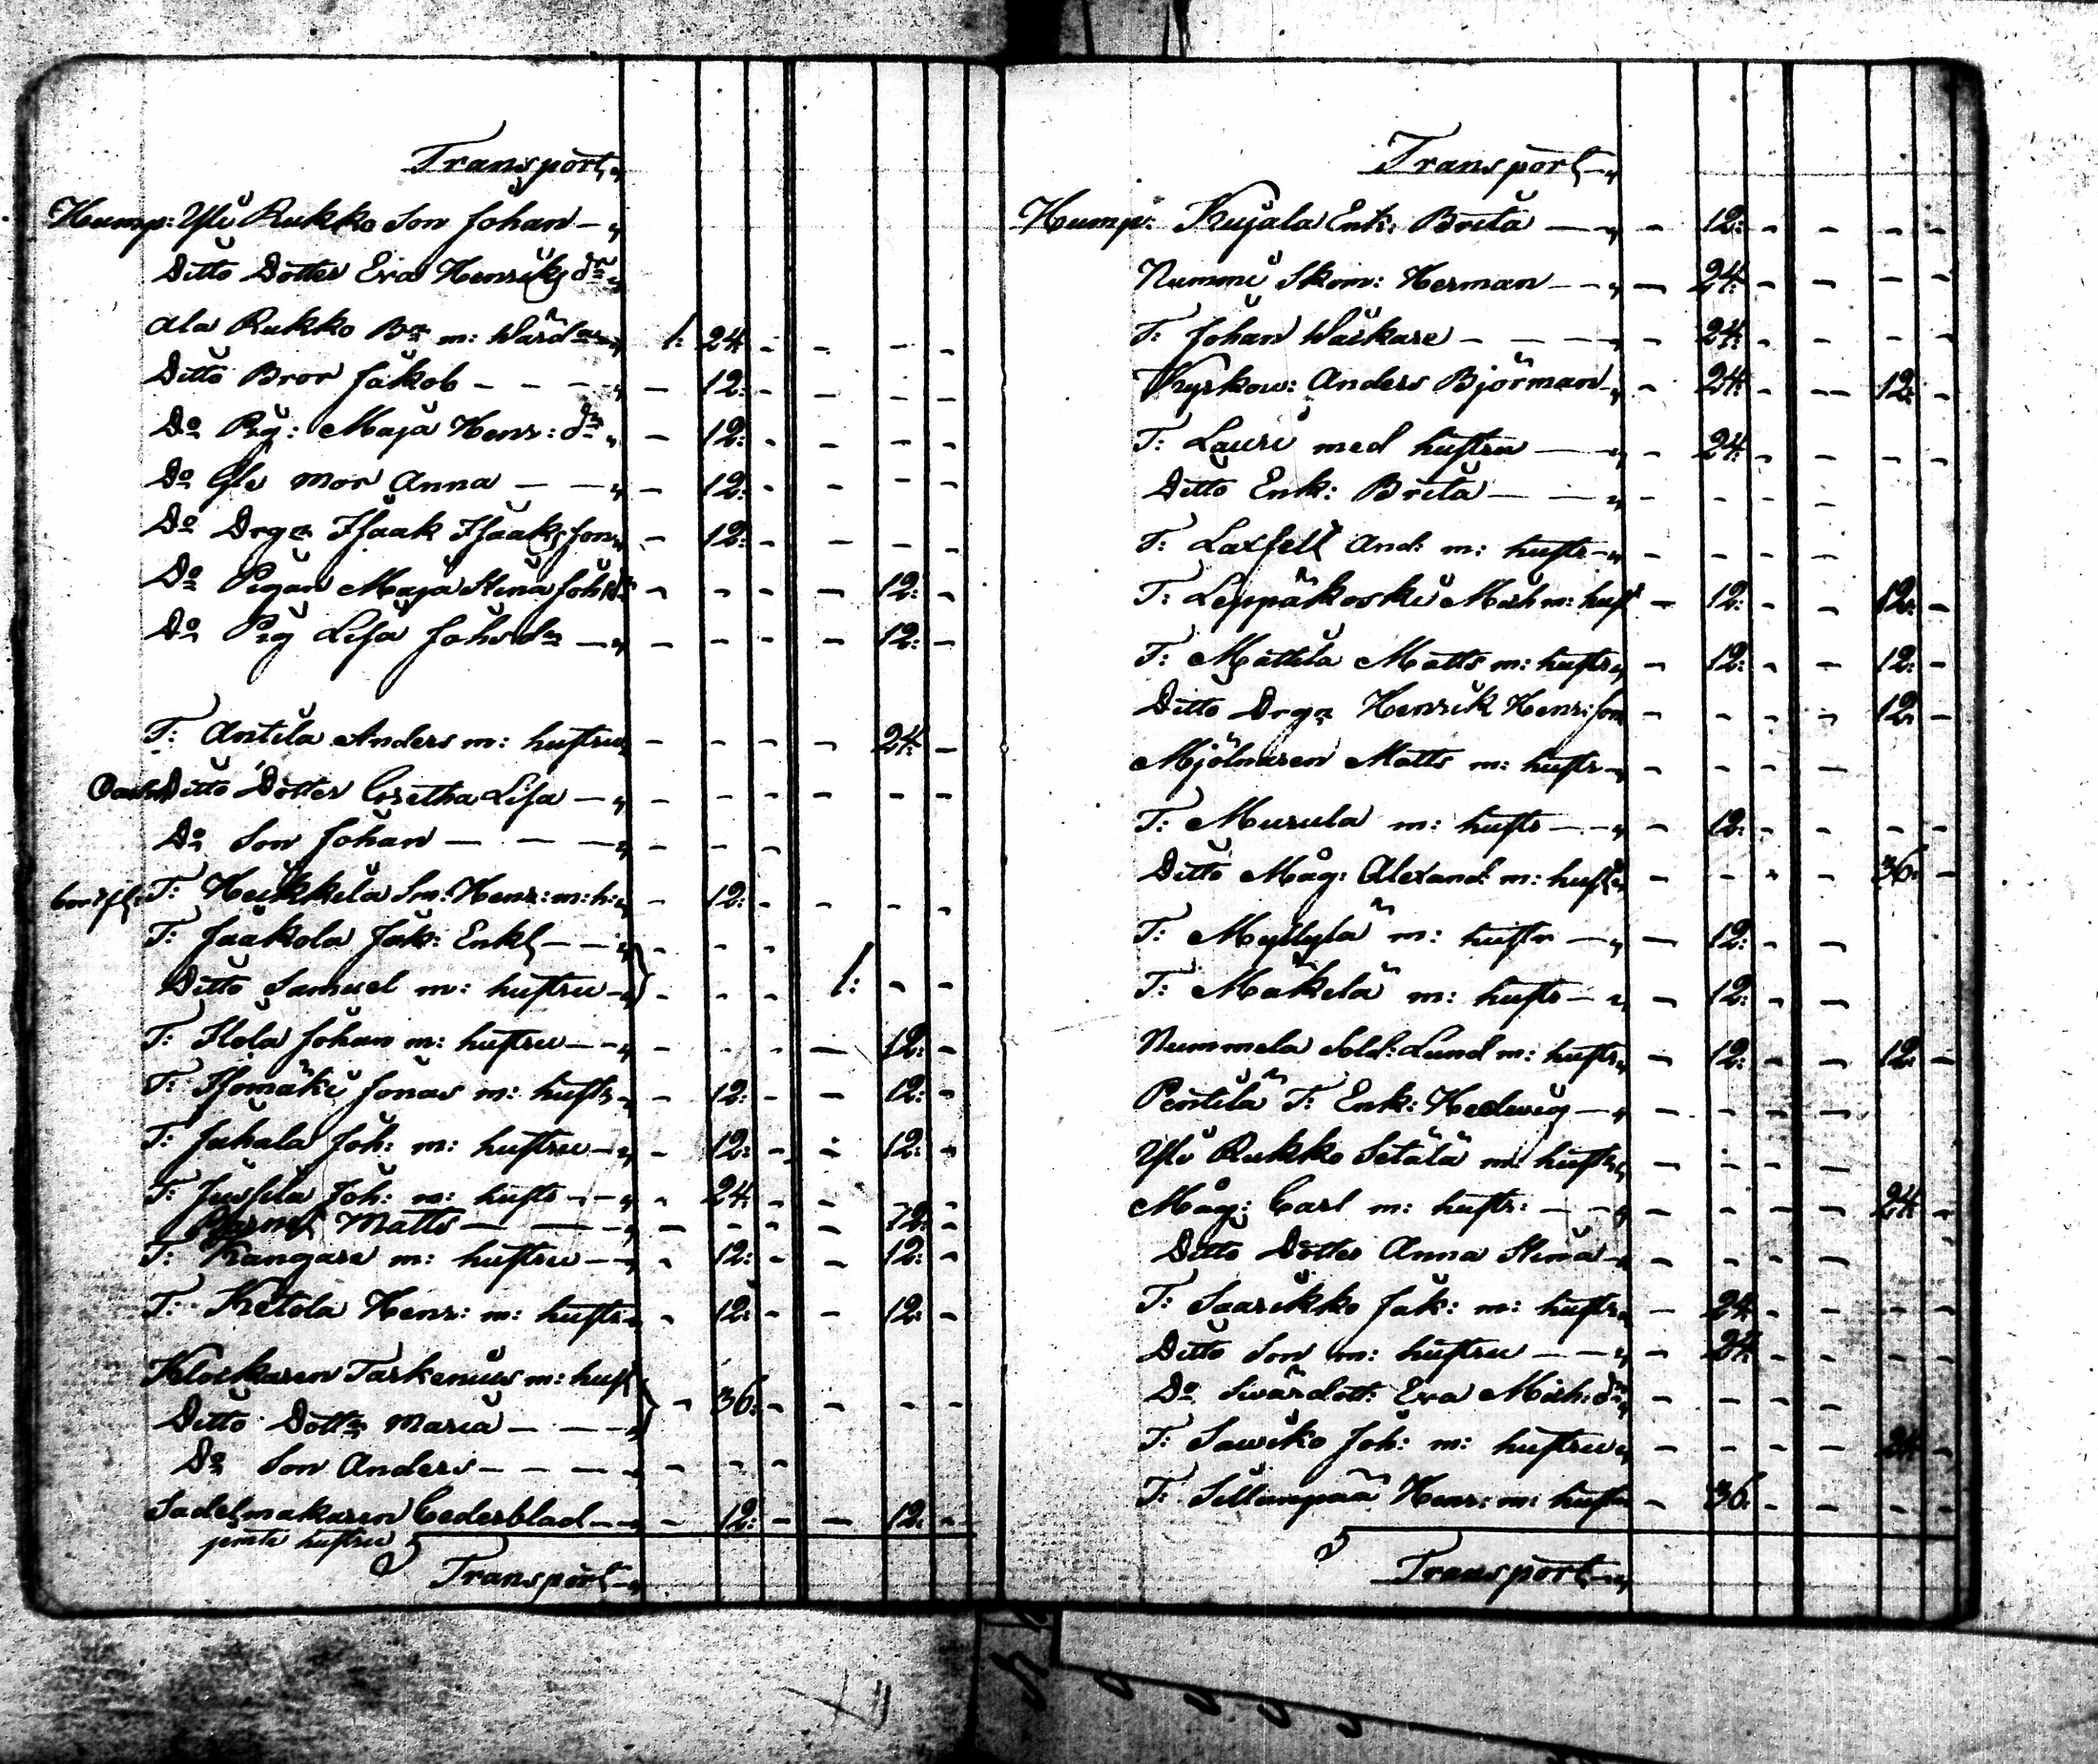 Transport
Hump: Yli Rukko Son Johan – „
Ditto Dotter Eva Henriks dr „
Ala Rukko Bn m: Wärd „ 1: 24: - - - -
Ditto Bror Jakob - - - „ - 12: - - - -
Do Pig: Maja Henr: dr „ - 12: - - - -
Do Gle mor Anna — — „ - 12: - - - -
Do Drgn Isaak Isaaksson - 12: - - - -
Do Pigan Maja Stina Joh dr - - - - 12: -
Do Pig Lisa Johsdr — „ - - - - 12: -
T: Antila Anders m: hustru - - - - 24: -
Ditto Dotter Gretha Lisa — „ - - - - - -
Do Son Johan — — — „ - - -
T: Heikkilä Henr: m: h: „ - 12: - - - -
T: Jaakola Jak: Enkl — - „ - - -
Ditto Samuel m: hustru - „ } - - - 1: - -
T: Ilola Johan m: hustru — - „ - - - — 12: -
T: Isomäki Jonas m: hustr „ - 12: - - 12: -
T: Juhala Joh: m: hustru - „ - 12: - - 12: -
T: Jussila Joh: m: hustr - - „ - 24: - - - -
Matts — — — „ - - - - 12: -
T: Kangare m: hustru — „ - 12: - - 12: -
T: Ketola Henr: m: hustr „ - 12: - - 12: -
Klockaren Tarkenius m: hust
Ditto Dottr Maria — — - „ } - 36: - - - -
Do Son Anders - - - - „ - - -
Sadelmakaren Cederblad - - - 12: - — 12: -
jemte hustru
Transport „
Transport „
Hump: Kujala Enk: Brita — — „ - 12: - - - -
Nummi Skom: Herman - - „ — 24: - - - -
T: Johan Wäckare - - - — „ - 24: - - - -
Kyrkow: Anders Björman „ - 24: - — 12: -
T: Lauri med hustru — „ - 24: - - - -
Ditto Enk: Brita — — „ - - - -
T: Laxfell And: m: hustr „ - - - -
T: Leppäkoski Mich m: hust - 12: - - 12: -
T: Mattila Matts m: hustr „ - 12: - - 12: -
Ditto Drgn Henrik Henr:son - - - - 12: -
Mjölnaren Matts m: hustr „ - - - —
T: Murula m: hustr — - „ - 12: - - - -
Ditto Måg: Alexand: m: hustr - - - - 36: -
T: Myllylä m: hustr — „ — 12: - -
T: Mäkelä m: hustr - „ — 12: - -
Nummela Sold: Lund m: hustr „ - 12: - - 12: -
Pentilä T: Enk: Hedwig — „ - - - —
Yli Rukko Setälä m: hustr „ — - - —
Måg: Carl m: hustr: - - - „ - - - - 24: -
Ditto Dotter Anna Stina „ - - - - - -
T: Saarikko Jak: m: hustr „ - 24: - - - -
Ditto Son m: hustru — - „ - 24: - - - -
Do Swärdott: Eva Mich: dr „ - - - -
T: Sawiko Joh: m: hustru „ - - - - 24: -
T: Sillanpää Henr: m: hustr - 36: - - - -
Transport „